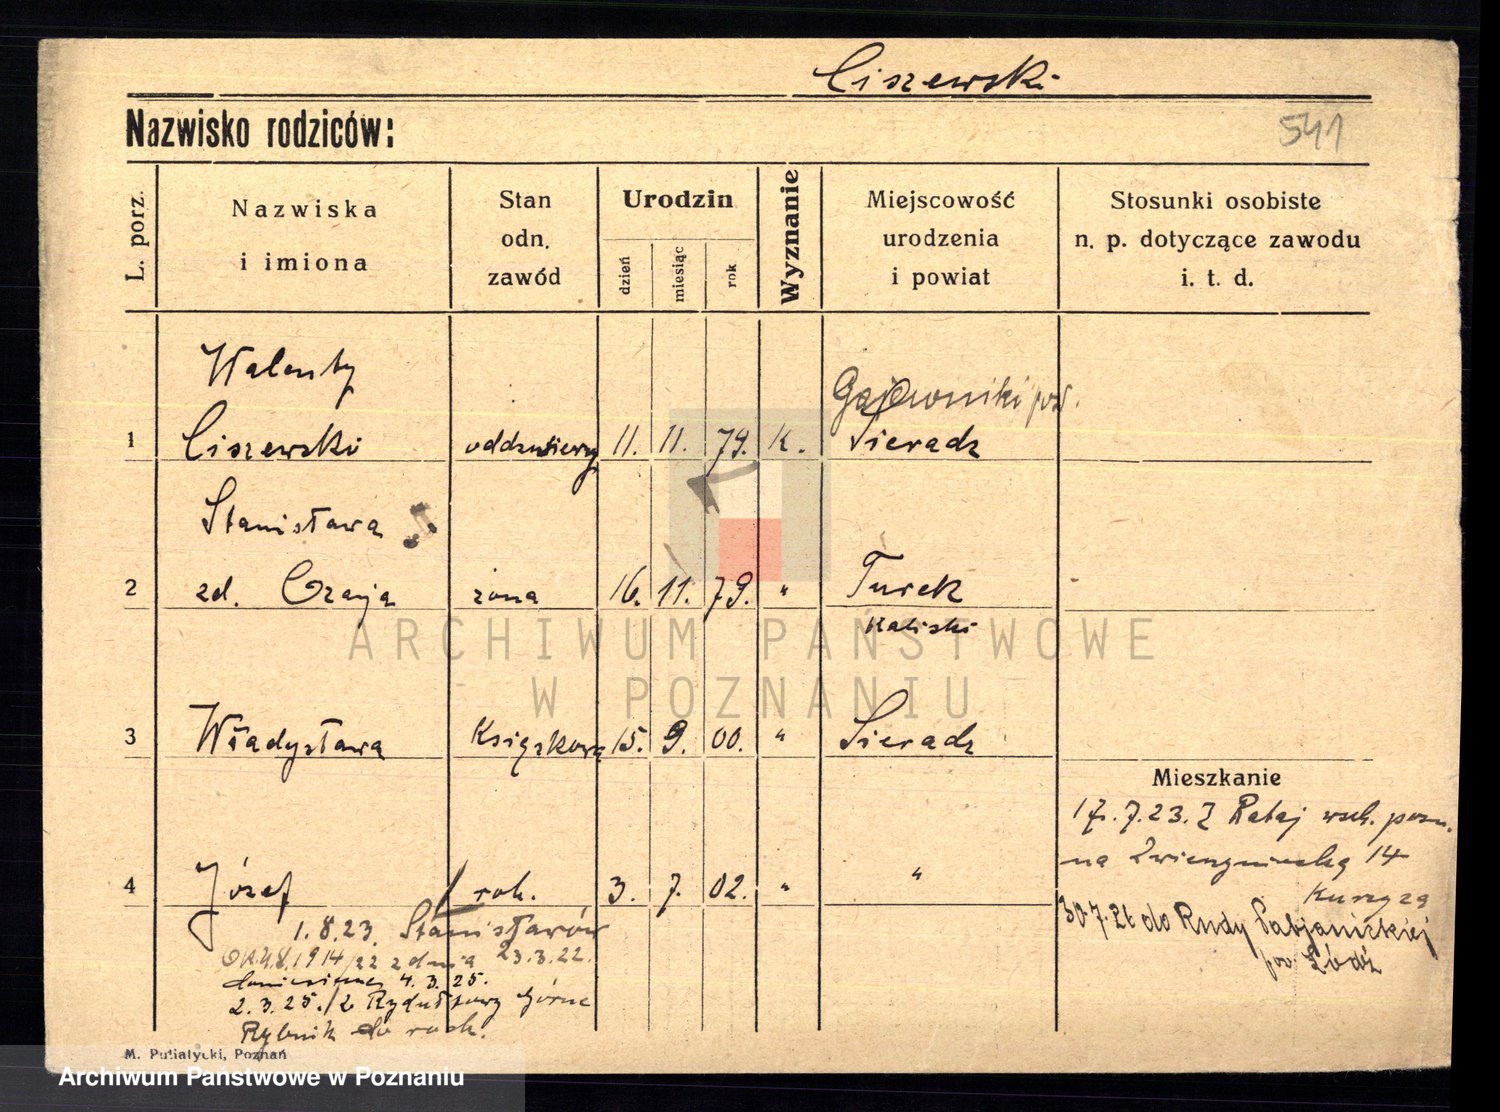 Ciszewski
Nazwisko rodziców:
541
L. porz.
Nazwiska
i imiona
Stan
odn.
zawód
Urodzin
dzień
miesiąc
rok
Wyznanie
Miejscowość
urodzenia
i powiat
Stosunki osobiste
n. p. dotyczące zawodu
i. t. d.
Walenty
Gajewniki pow.
1 Ciszewski 11. 11. 79. K. Sieradz
Stanisława
2 zd. Czaja żona 16. 11. 79. " Turek
Kaliski
3 Władysława Książkowa 15. 9. 00. " Sieradz
Mieszkanie
17.7.23. Z Rataj wsch. pozn.
na Zwierzyniecką 14
4 Józef rob. 3. 7. 02. " "
30.7. do Rudy Pabjanickiej
pow. Łódź
1.8.23. Stanisławów
1914/22 z dnia 23.3.22.
4.3.25.
2.3.25. Górne
Rybnik do
M. Putiatycki, Poznań
ARCHIWUM PAŃSTWOWE
W POZNANIU
Archiwum Państwowe w Poznaniu